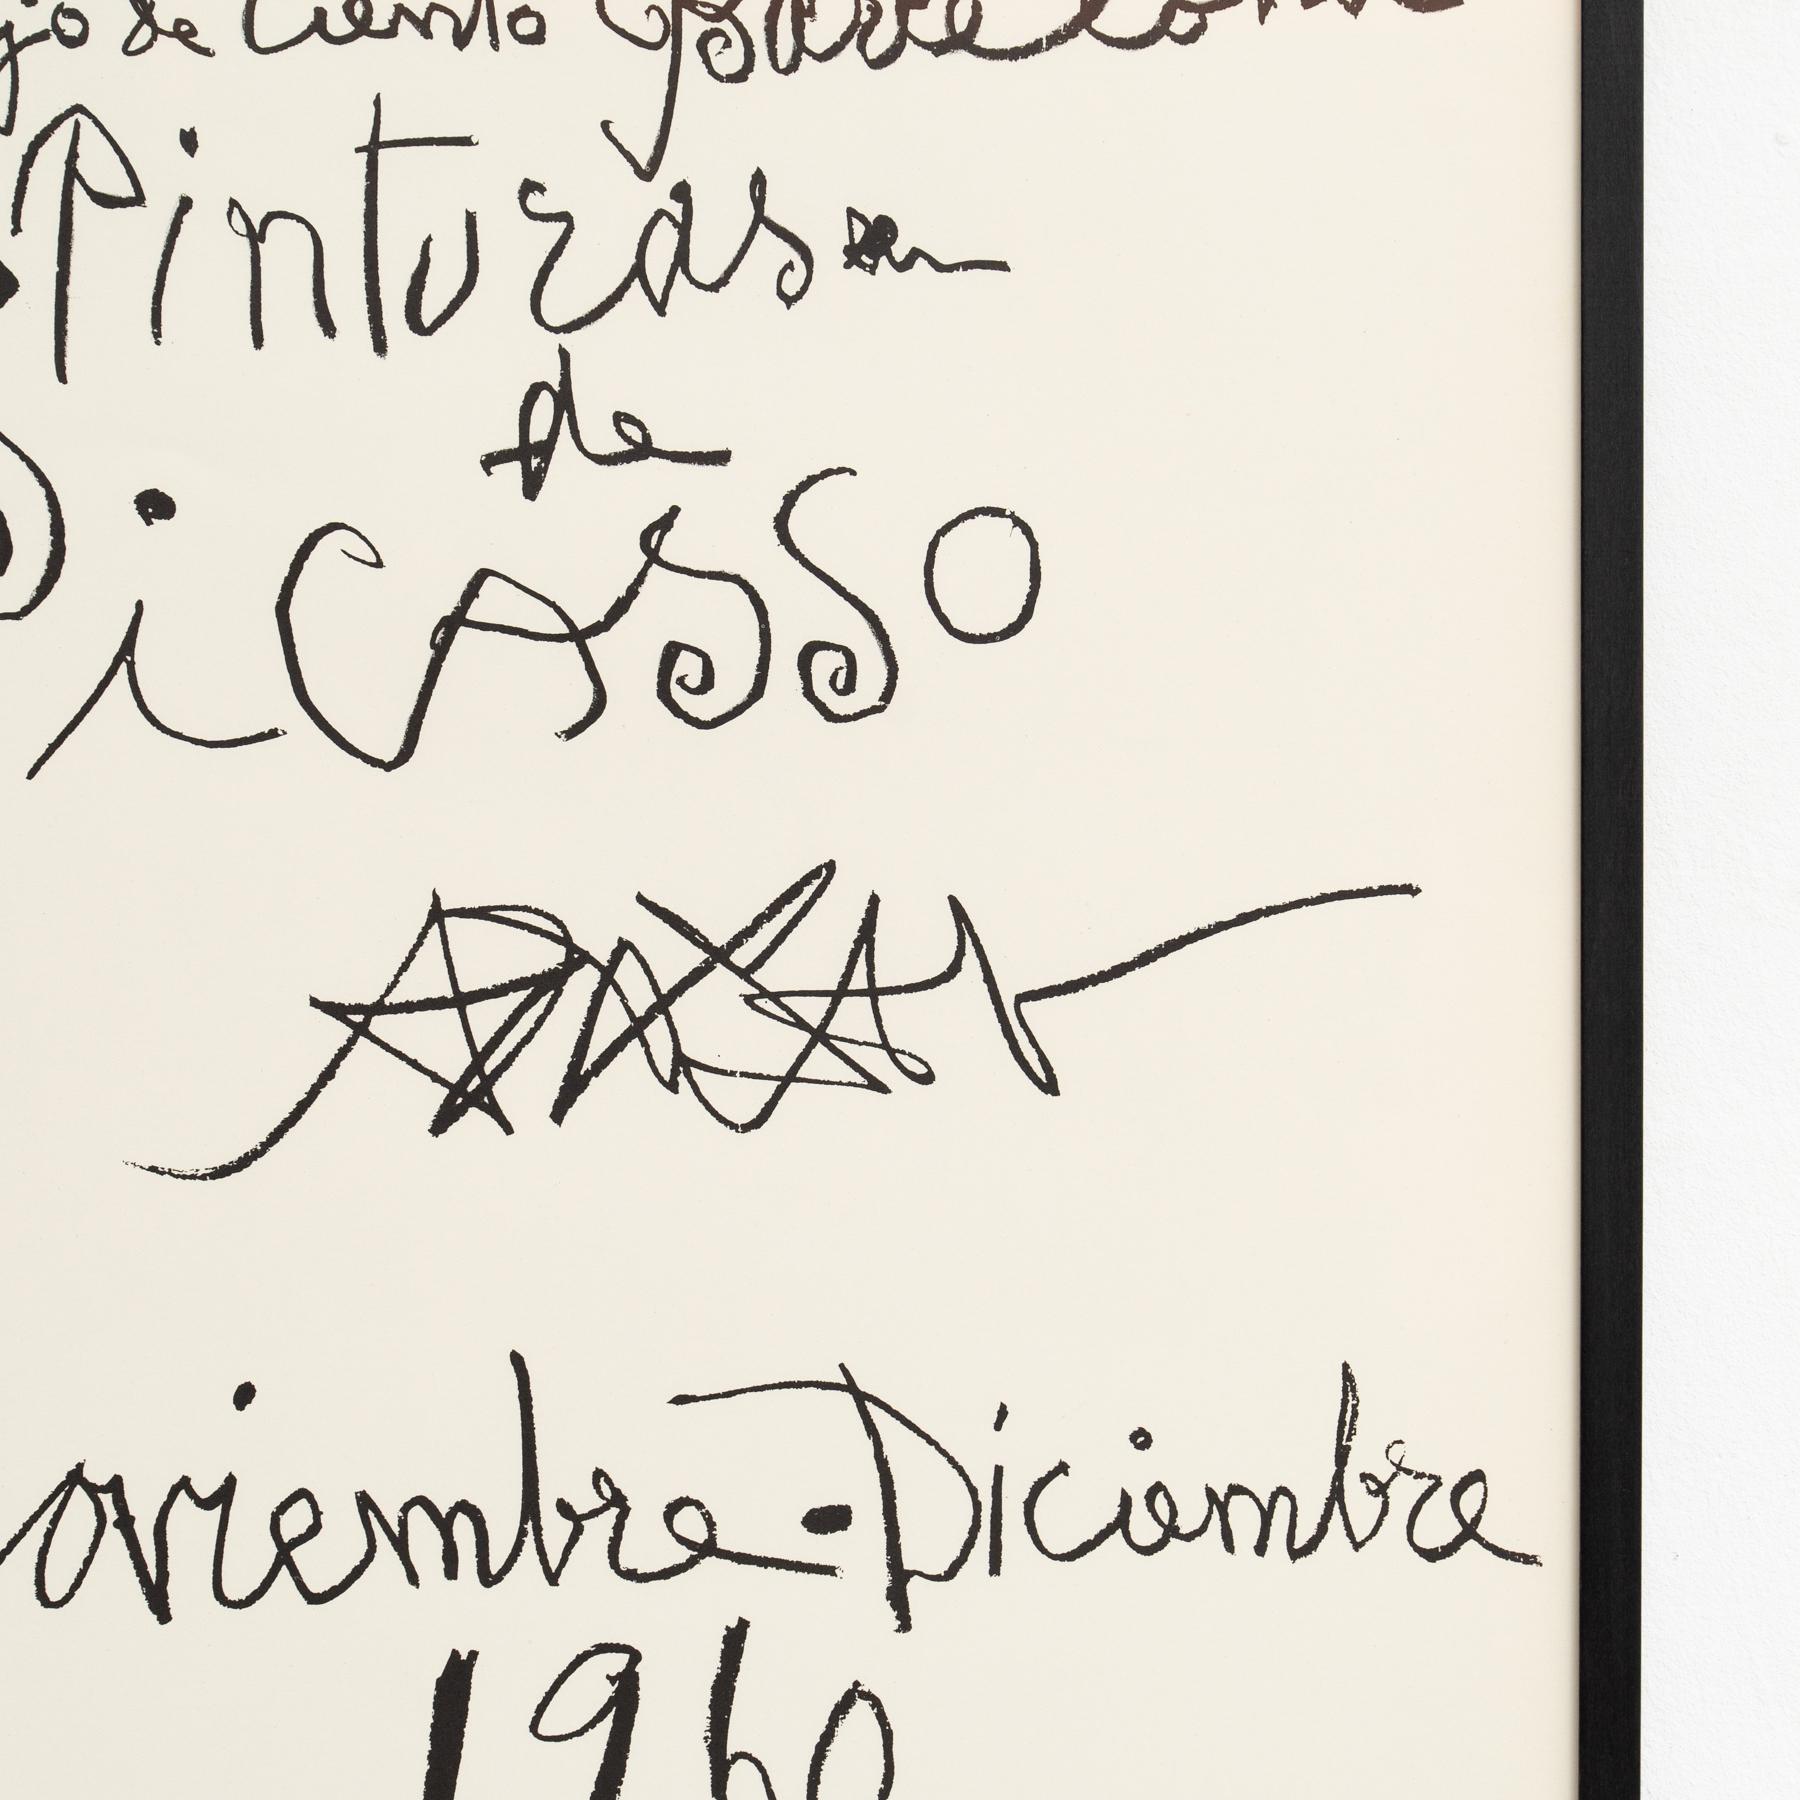 jo de Ciento Barcelona
Pinturas
de
Picasso
oviembre - Diciembre
1960